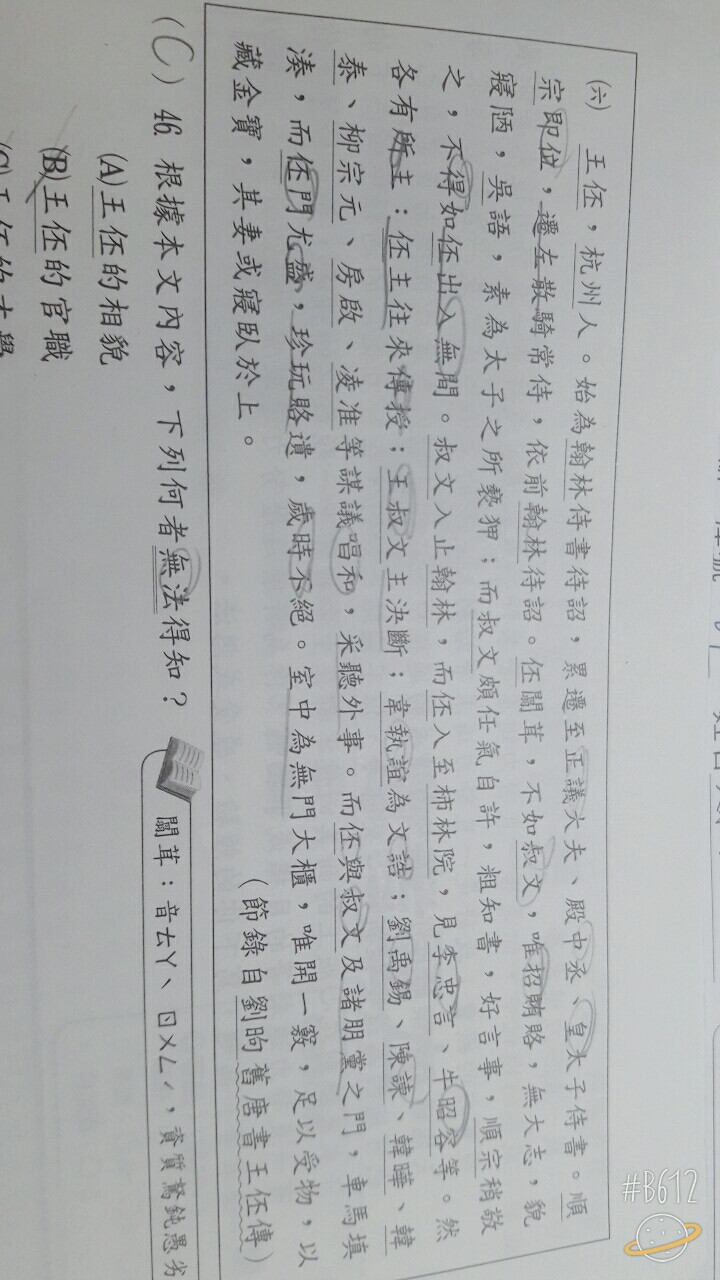 (六) 王伾，杭州人。始為翰林侍書待詔，累遷至正議大夫、殿中丞、皇太子侍書。順
宗即位，遷左散騎常侍，依前翰林待詔。伾闒茸，不如叔文，唯招賄賂，無大志，貌
寢陋，吳語，素為太子之所褻狎；而叔文頗任氣自許，粗知書，好言事，順宗稍敬
之，不得如伾出入無間。叔文入止翰林，而伾入至柿林院，見李忠言、牛昭容等。然
各有所主：伾主往來傳授；王叔文主決斷；韋執誼為文誥；劉禹錫、陳諫、韓曄、韓
泰、柳宗元、房啟、凌准等謀議唱和，采聽外事。而伾與叔文及諸朋黨之門，車馬填
湊，而伾門尤盛，珍玩賂遺，歲時不絕。室中為無門大櫃，唯開一竅，足以受物，以
藏金寶，其妻或寢臥於上。
(節錄自劉昫舊唐書王伾傳)
(C) 46. 根據本文內容，下列何者無法得知？
(A)王伾的相貌
(B)王伾的官職
(C)王伾的才學
闒茸：音ㄊㄚˋ ㄖㄨㄥˊ，資質駑鈍愚劣
#B612